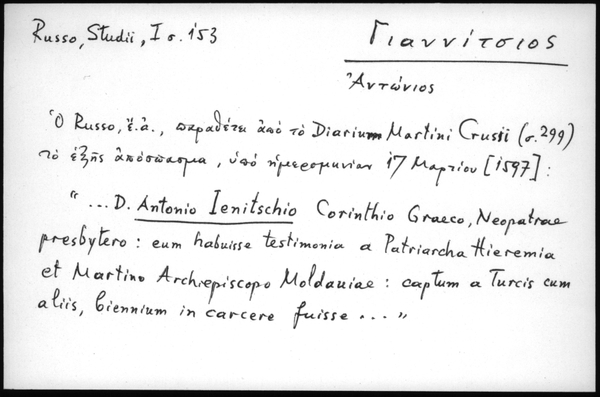 Russo, Studii, I σ. 153
Γιαννίτσιος
Ἀντώνιος
Ὁ Russo, ἔ.ἀ., παραθέτει ἀπό τὸ Diarium Martini Crusii (σ. 299)
τὸ ἑξῆς ἀπόσπασμα, ὑπό ἡμερομηνίαν 17 Μαρτίου [1597] :
"... D. Antonio Ienitschio Corinthio Graeco, Neopatrae
presbytero : eum habuisse testimonia a Patriarcha Hieremia
et Martino Archiepiscopo Moldaviae : captum a Turcis cum
aliis, biennium in carcere fuisse ... „